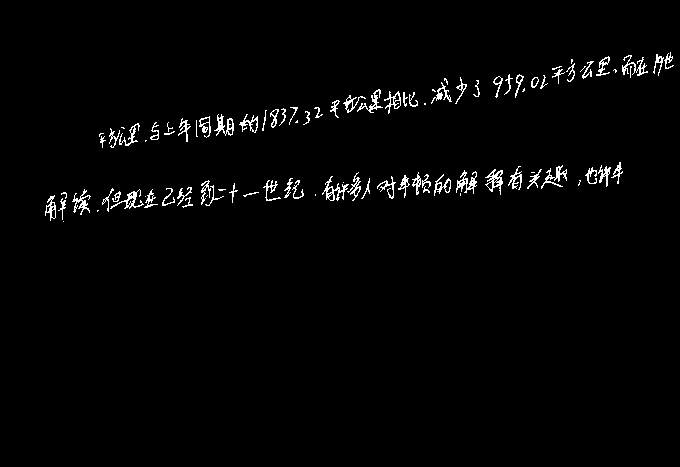 平方公里.与上年同期的1837.32平方公里相比.减少了959.02平方公里.而在其他
解读.但现在已经到二十一世纪.有许多人对牛顿的解释有兴趣,也许牛